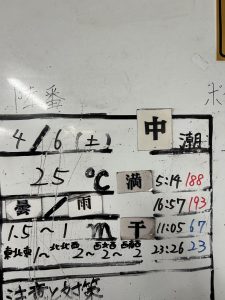 陸番
ボ
4/6(土) 中潮
25℃ 満 5:14 188
曇/雨 16:57 193
1.5~1m 干 11:05 67
東北東1~北北西2~西北西2~西南西2 23:26 23
注意と対策